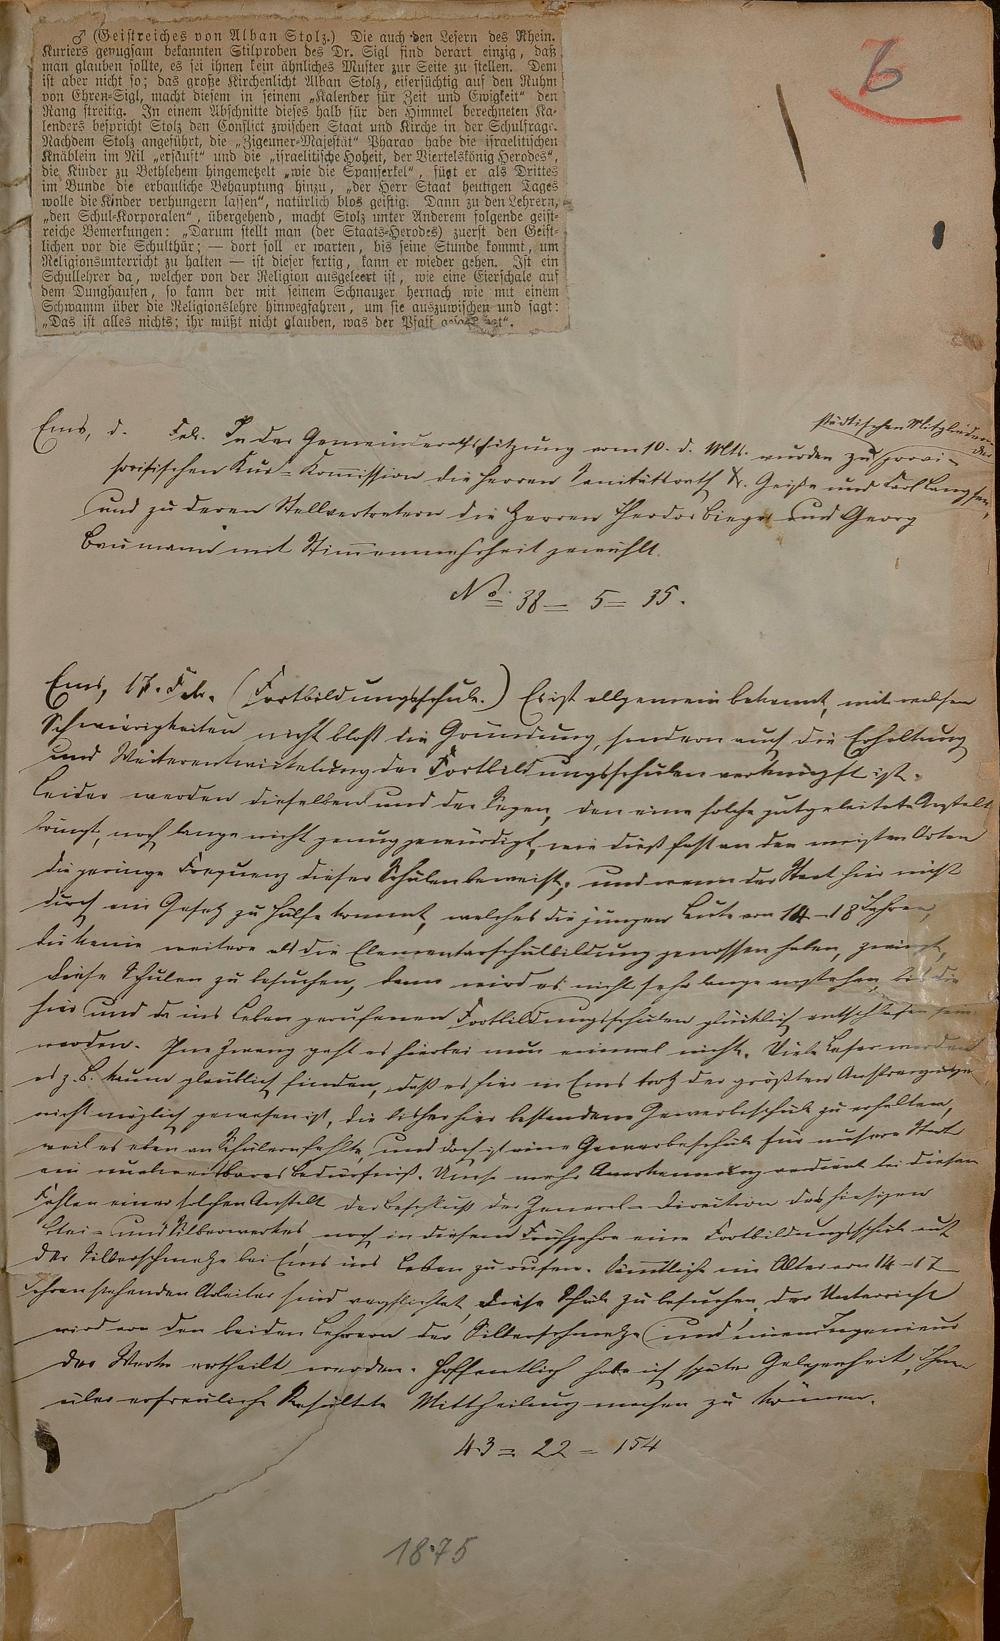 ♂ (Geistreiches von Alban Stolz.) Die auch den Lesern des Rhein.
Kuriers genugsam bekannten Stilproben des Dr. Sigl sind derart einzig, daß
man glauben sollte, es sei ihnen kein ähnliches Muster zur Seite zu stellen. Dem
ist aber nicht so; das große Kirchenlicht Alban Stolz, eifersüchtig auf den Ruhm
von Ehren-Sigl, macht diesem in seinem „Kalender für Zeit und Ewigkeit“ den
Rang streitig. In einem Abschnitte dieses halb für den Himmel berechneten Ka-
lenders bespricht Stolz den Conflict zwischen Staat und Kirche in der Schulfrage.
Nachdem Stolz angeführt, die „Zigeuner-Majestät“ Pharao habe die israelitischen
Knäblein im Nil „ersäuft“ und die „israelitische Hoheit, der Viertelskönig Herodes“,
die Kinder zu Bethlehem hingemetzelt „wie die Spanferkel“, fügt er als Drittes
im Bunde die erbauliche Behauptung hinzu, „der Herr Staat heutigen Tages
wolle die Kinder verhungern lassen“, natürlich blos geistig. Dann zu den Lehrern,
„den Schul-Korporalen“, übergehend, macht Stolz unter Anderem folgende geist-
reiche Bemerkungen: „Darum stellt man (der Staats-Herodes) zuerst den Geist-
lichen vor die Schulthür; — dort soll er warten, bis seine Stunde kommt, um
Religionsunterricht zu halten — ist dieser fertig, kann er wieder gehen. Ist ein
Schullehrer da, welcher von der Religion ausgeleert ist, wie eine Eierschale auf
dem Dunghaufen, so kann der mit seinem Schnauzer hernach wie mit einem
Schwamm über die Religionslehre hinwegfahren, um sie auszuwischen und sagt:
„Das ist alles nichts; ihr müßt nicht glauben, was der Pfaff
6
städtischen Mitgliedern der
Ems, d. Feb. In der Gemeinderathssitzung vom 10. d. Mts. wurden zu provi-
sorischen Kur-Kommission die Herren Sanitätsrath Dr. Geisse und Karl
und zu deren Stellvertretern die Herren Theodor und Georg
Baumann mit Stimmenmehrheit gewählt.
No. 38 = 5 = 35.
Ems, 17. Feb. (Fortbildungsschule.) Es ist allgemein bekannt, mit welchen
Schwierigkeiten nicht bloß die Gründung, sondern auch die Erhaltung
und Weiterentwickelung der Fortbildungsschulen verknüpft ist.
Leider werden dieselben und der Segen, den eine solche gutgeleitete Anstalt
bringt, noch lange nicht genug gewürdigt, wie dieß fast an den meisten Orten
die geringe Frequenz dieser Schulen beweist, und wenn der Staat hier nicht
durch ein Gesetz zu Hülfe kommt, welches die jungen Leute von 14–18 Jahren,
die keine weitere als die Elementarschulbildung genossen haben, zwingt,
diese Schulen zu besuchen, dann wird es nicht sehr lange anstehen, bis die
hie und da ins Leben gerufenen Fortbildungsschulen glücklich entschlafen sein
werden. Ohne Zwang geht es hierbei nun einmal nicht. Viele Leser werden
es z. B. kaum glaublich finden, daß es hier in Ems trotz der größten Anstrengungen
nicht möglich gewesen ist, die bisher hier bestandene Gewerbeschule zu erhalten,
weil es eben an Schülern fehlte, und doch ist eine Gewerbeschule für unsere Stadt
ein unabweisbares Bedürfniß. Umso mehr Anerkennung verdient bei diesem
Fehlen einer solchen Anstalt der Beschluß der General-Direction des hiesigen
Blei- und Silberwerkes noch in diesem Frühjahre eine Fortbildungsschule auf
der Silberschmelze bei Ems ins Leben zu rufen. Sämmtliche im Alter von 14–17
Jahren stehenden Arbeiter sind verpflichtet, diese Schule zu besuchen. Der Unterricht
wird von den beiden Lehrern der Silberschmelze und einem Ingenieur
des Werks ertheilt werden. Hoffentlich habe ich später Gelegenheit, Ihnen
über erfreuliche Resultate Mittheilung machen zu können.
43 = 22 = 154
1875